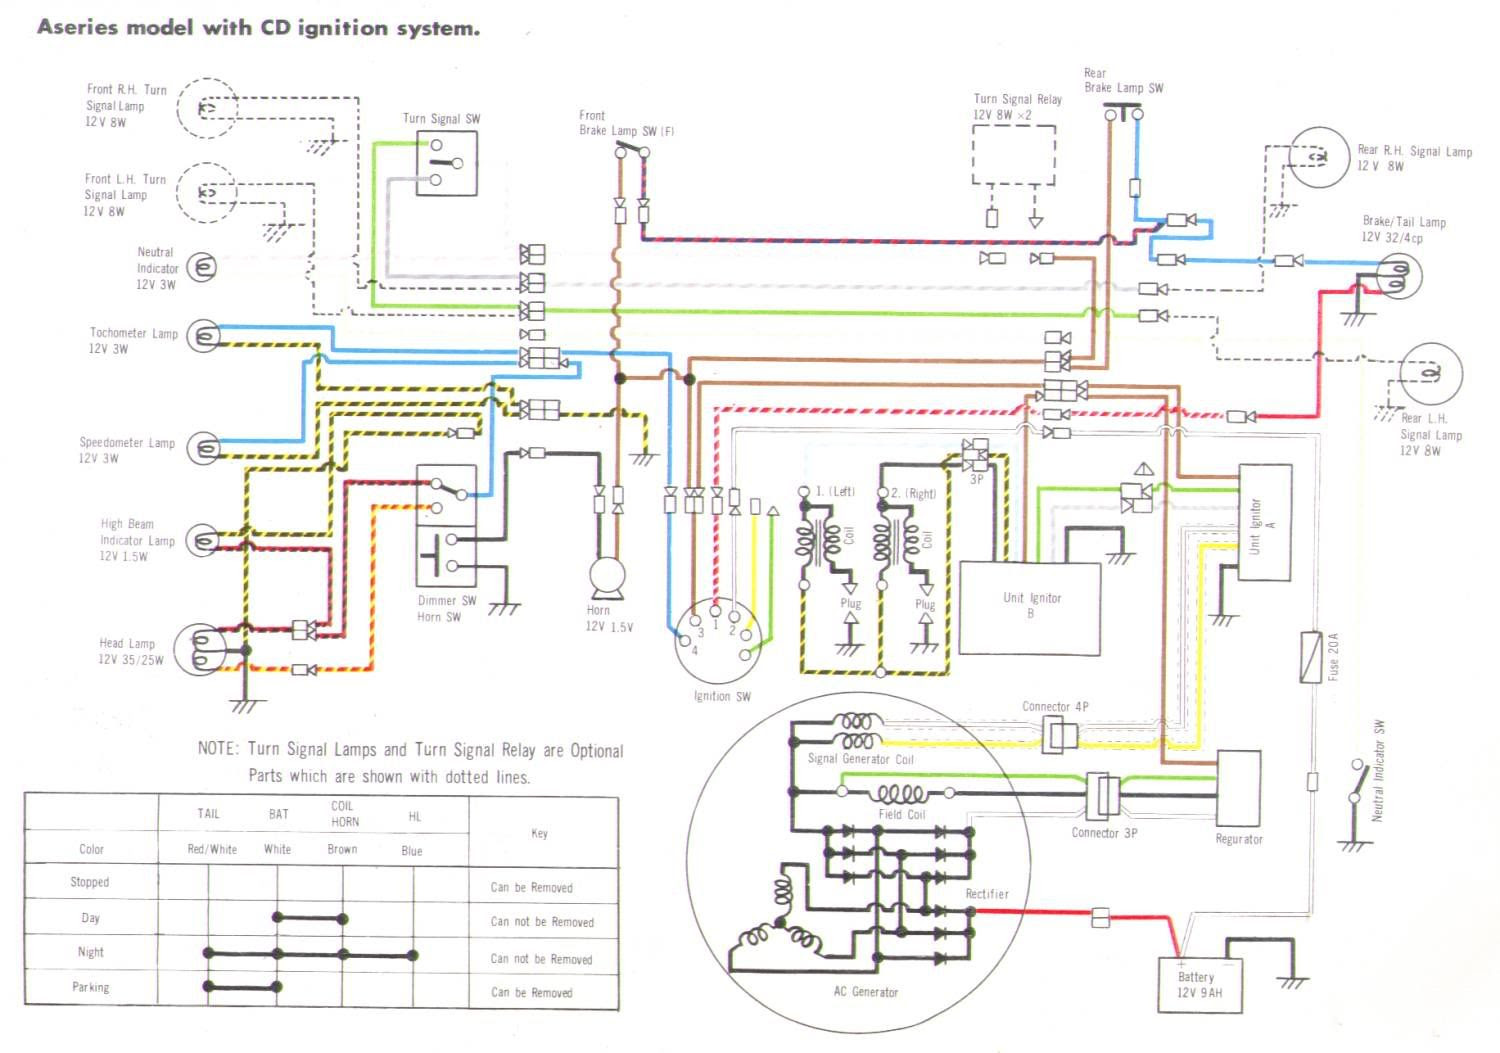 Aseries model with CD ignition system.
Front R.H. Turn
Signal Lamp
12V 8W
Front L.H. Turn
Signal Lamp
12V 8W
Neutral
Indicator
12V 3W
Tochometer Lamp
12V 3W
Speedometer Lamp
12V 3W
High Beam
Indicator Lamp
12V 1.5W
Head Lamp
12V 35/25W
Turn Signal SW
Front
Brake Lamp SW (F)
Turn Signal Relay
12V 8W ×2
Rear
Brake Lamp SW
Rear R.H. Signal Lamp
12 V 8W
Brake/Tail Lamp
12V 32/4cp
Rear L.H.
Signal Lamp
12V 8W
Dimmer SW
Horn SW
Horn
12V 1.5V
1. (Left)
Coil
Plug
2. (Right)
Coil
Plug
3P
Unit Ignitor
B
Unit Ignitor
A
1
2
3
4
Ignition SW
Fuse 20A
Neutral Indicator SW
Connector 4P
Signal Generator Coil
Field Coil
Connector 3P
Regurator
Rectifier
AC Generator
+
−
Battery
12V 9AH
NOTE: Turn Signal Lamps and Turn Signal Relay are Optional
Parts which are shown with dotted lines.
TAIL BAT COIL HORN HL Key
Color Red/White White Brown Blue
Stopped Can be Removed
Day Can not be Removed
Night Can not be Removed
Parking Can be Removed